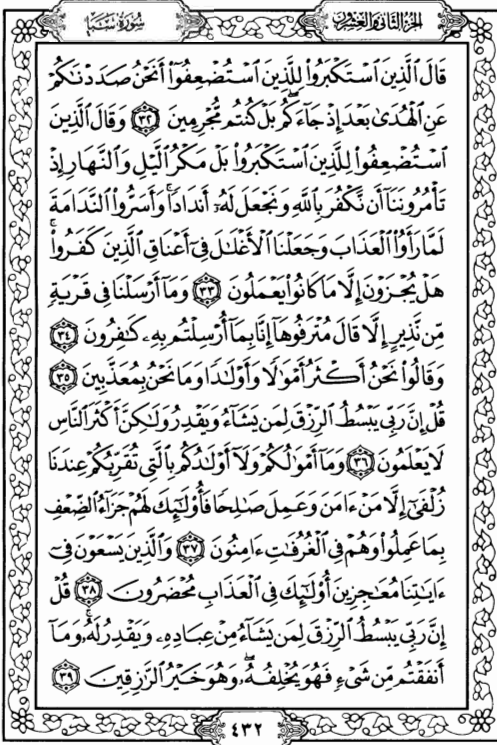 سُورَةُ سَبَإٍ
الجُزْءُ الثَّانِي وَالعِشْرُونَ
قَالَ ٱلَّذِينَ ٱسْتَكْبَرُوا۟ لِلَّذِينَ ٱسْتُضْعِفُوٓا۟ أَنَحْنُ صَدَدْنَٰكُمْ
عَنِ ٱلْهُدَىٰ بَعْدَ إِذْ جَآءَكُم ۖ بَلْ كُنتُم مُّجْرِمِينَ ٣٢ وَقَالَ ٱلَّذِينَ
ٱسْتُضْعِفُوا۟ لِلَّذِينَ ٱسْتَكْبَرُوا۟ بَلْ مَكْرُ ٱلَّيْلِ وَٱلنَّهَارِ إِذْ
تَأْمُرُونَنَآ أَن نَّكْفُرَ بِٱللَّهِ وَنَجْعَلَ لَهُۥٓ أَندَادًا ۚ وَأَسَرُّوا۟ ٱلنَّدَامَةَ
لَمَّا رَأَوُا۟ ٱلْعَذَابَ وَجَعَلْنَا ٱلْأَغْلَٰلَ فِىٓ أَعْنَاقِ ٱلَّذِينَ كَفَرُوا۟ ۚ
هَلْ يُجْزَوْنَ إِلَّا مَا كَانُوا۟ يَعْمَلُونَ ٣٣ وَمَآ أَرْسَلْنَا فِى قَرْيَةٍ
مِّن نَّذِيرٍ إِلَّا قَالَ مُتْرَفُوهَآ إِنَّا بِمَآ أُرْسِلْتُم بِهِۦ كَٰفِرُونَ ٣٤
وَقَالُوا۟ نَحْنُ أَكْثَرُ أَمْوَٰلًا وَأَوْلَٰدًا وَمَا نَحْنُ بِمُعَذَّبِينَ ٣٥
قُلْ إِنَّ رَبِّى يَبْسُطُ ٱلرِّزْقَ لِمَن يَشَآءُ وَيَقْدِرُ وَلَٰكِنَّ أَكْثَرَ ٱلنَّاسِ
لَا يَعْلَمُونَ ٣٦ وَمَآ أَمْوَٰلُكُمْ وَلَآ أَوْلَٰدُكُم بِٱلَّتِى تُقَرِّبُكُمْ عِندَنَا
زُلْفَىٰٓ إِلَّا مَنْ ءَامَنَ وَعَمِلَ صَٰلِحًا فَأُو۟لَٰٓئِكَ لَهُمْ جَزَآءُ ٱلضِّعْفِ
بِمَا عَمِلُوا۟ وَهُمْ فِى ٱلْغُرُفَٰتِ ءَامِنُونَ ٣٧ وَٱلَّذِينَ يَسْعَوْنَ فِىٓ
ءَايَٰتِنَا مُعَٰجِزِينَ أُو۟لَٰٓئِكَ فِى ٱلْعَذَابِ مُحْضَرُونَ ٣٨ قُلْ
إِنَّ رَبِّى يَبْسُطُ ٱلرِّزْقَ لِمَن يَشَآءُ مِنْ عِبَادِهِۦ وَيَقْدِرُ لَهُۥ ۚ وَمَآ
أَنفَقْتُم مِّن شَىْءٍ فَهُوَ يُخْلِفُهُۥ ۖ وَهُوَ خَيْرُ ٱلرَّٰزِقِينَ ٣٩
٤٣٢